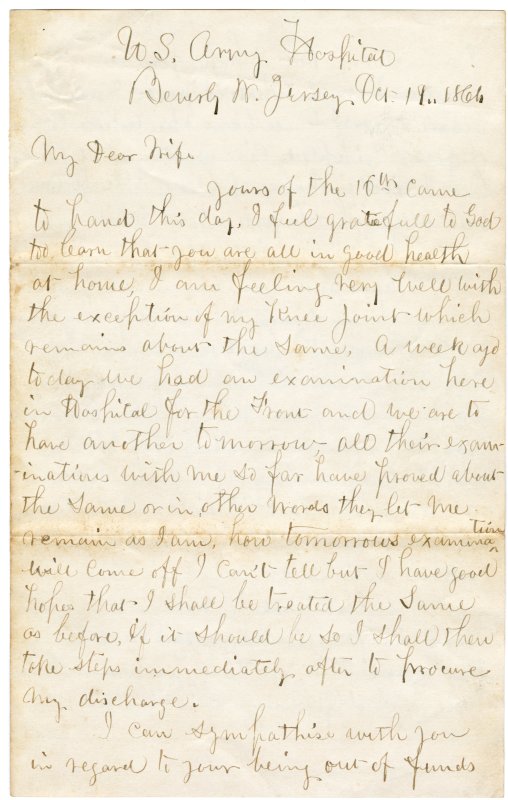 U.S. Army Hospital
Beverly N. Jersey, Oct. 19., 1864
My Dear Wife
yours of the 16th came
to hand this day, I feel gratefull to God
too learn that you are all in good health
at home, I am feeling very well with
the exception of my Knee Joint which
remains about the same. A week ago
to day we had an examination here
in Hospital for the Front and we are to
have another tomorrow, all their exam-
-inations with me so far have proved about
the same or in other words they let me
remain as I am, how tomorrows examination
will come off I can't tell but I have good
hopes that I shall be treated the same
as before, if it should be so I shall then
take steps immediately after to procure
my discharge.
I can sympathise with you
in regard to your being out of funds